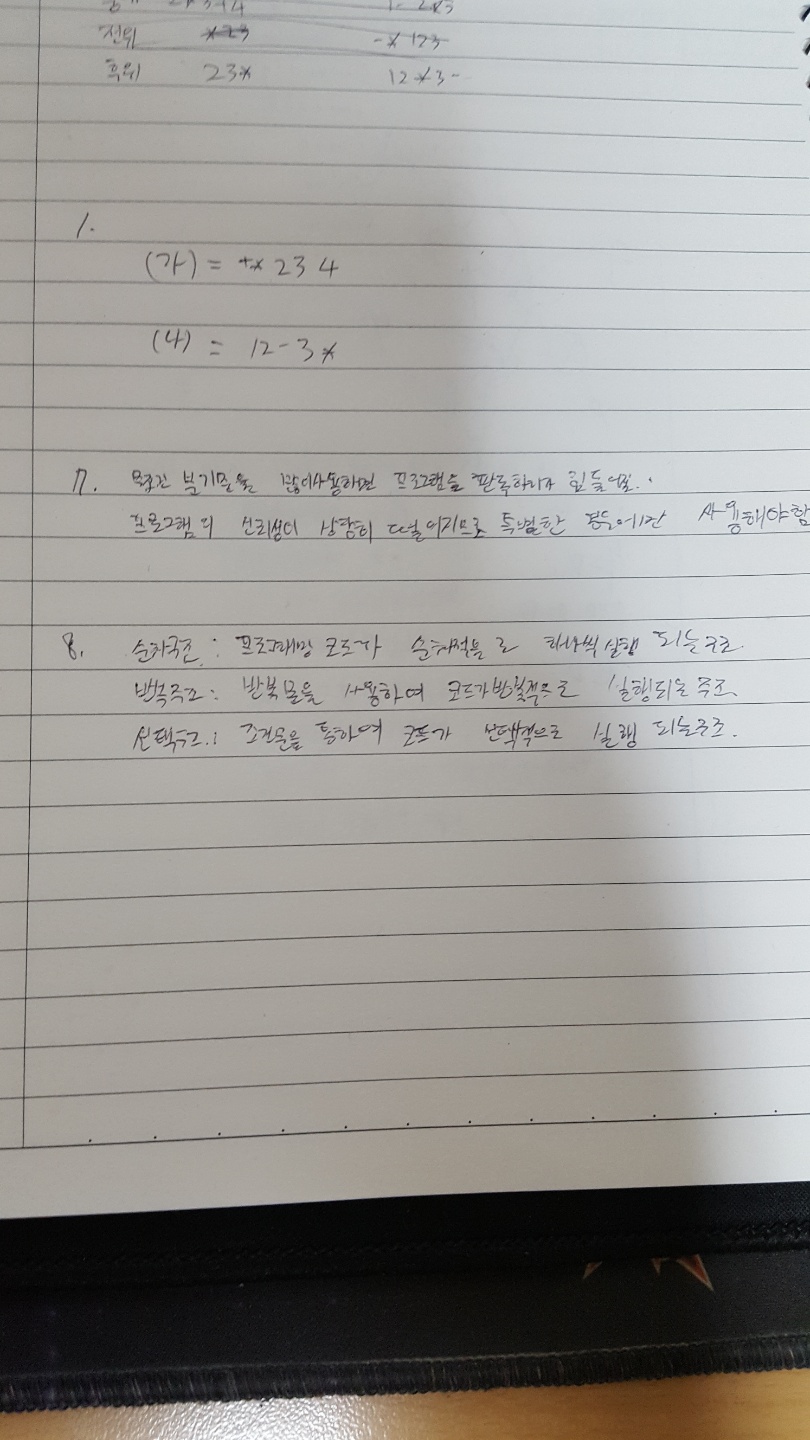 2*3+4 1-2*3
전위 *23 -*123
후위 23* 12*3-
1.
(가) = +* 23 4
(나) = 12-3*
7. 무조건 분기문을 많이사용하면 프로그램을 판독하기가 힘들어요.
프로그램의 신뢰성이 상당히 떨어지므로 특별한 경우에만 사용해야함
8. 순차구조 : 프로그래밍 코드가 순차적으로 하나씩 실행 되는구조.
반복구조 : 반복문을 사용하여 코드가 반복적으로 실행되는 구조.
선택구조 : 조건문을 통하여 코드가 선택적으로 실행 되는구조.